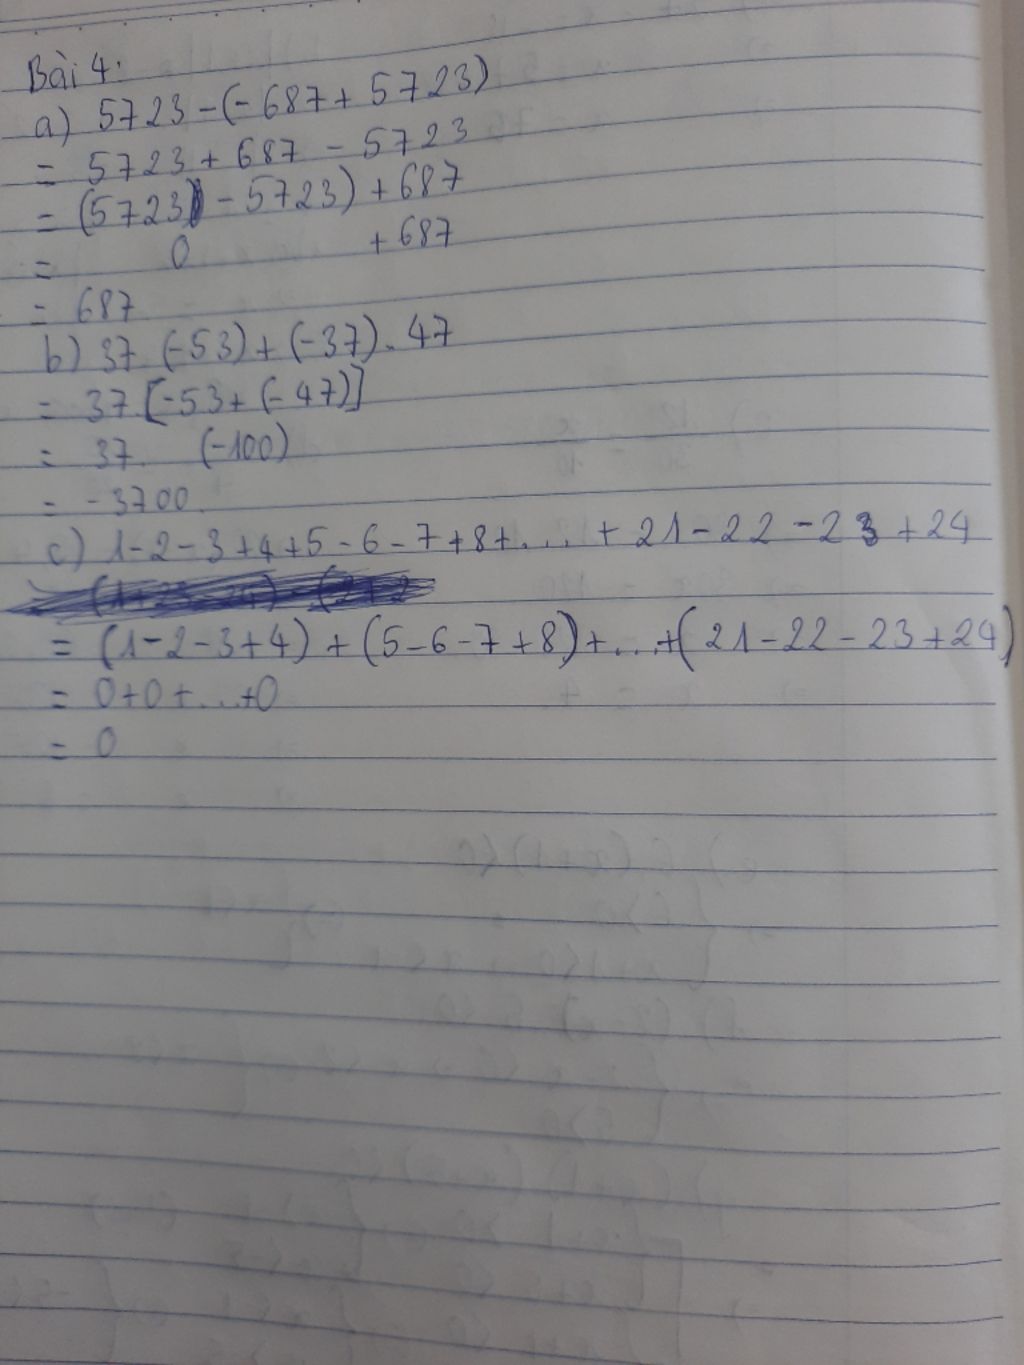 Bài 4:
a) 5723 - (-687 + 5723)
= 5723 + 687 - 5723
= (5723 - 5723) + 687
= 0 + 687
= 687
b) 37. (-53) + (-37). 47
= 37. [-53 + (-47)]
= 37. (-100)
= -3700
c) 1 - 2 - 3 + 4 + 5 - 6 - 7 + 8 + ... + 21 - 22 - 23 + 24
= (1 - 2 - 3 + 4) + (5 - 6 - 7 + 8) + ... + (21 - 22 - 23 + 24)
= 0 + 0 + ... + 0
= 0